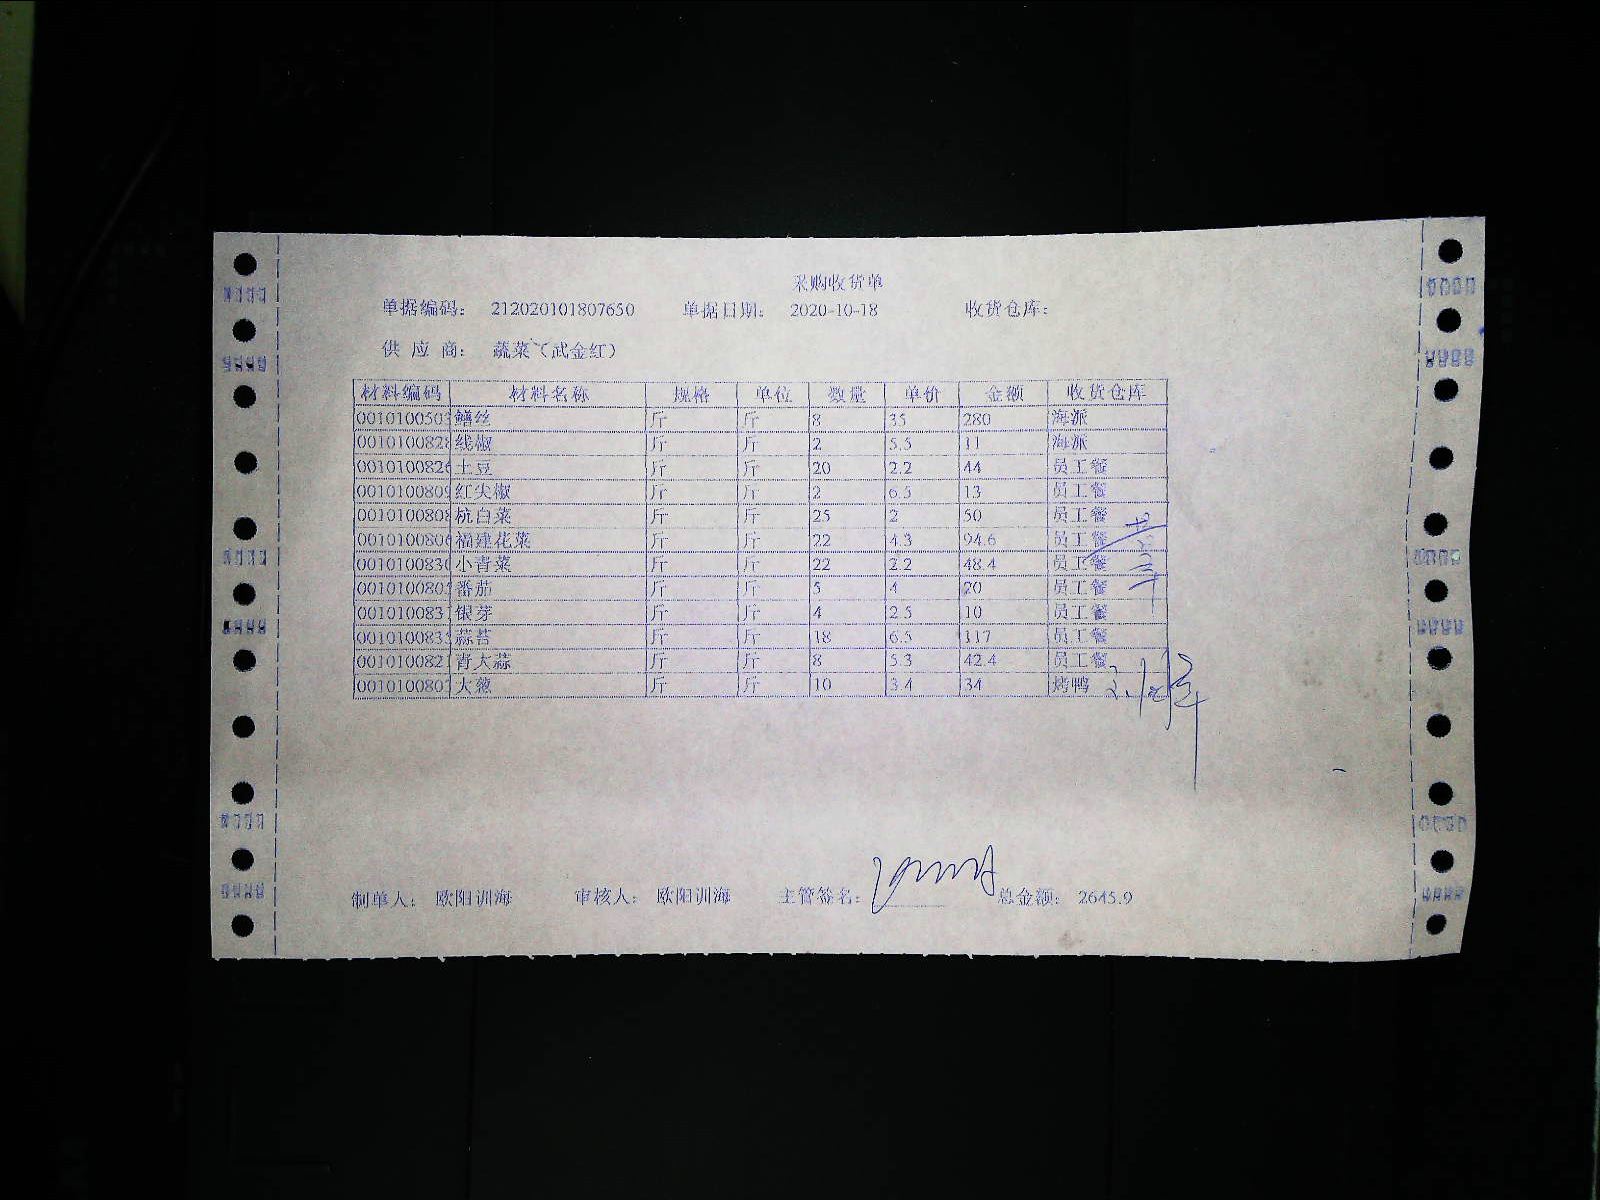 采购收货单
单据编码： 212020101807650 单据日期： 2020-10-18 收货仓库：
供 应 商： 蔬菜（武金红）
材料编码 材料名称 规格 单位 数量 单价 金额 收货仓库
0010100503 鳝丝 斤 斤 8 35 280 海派
0010100828 线椒 斤 斤 2 5.5 11 海派
0010100826 土豆 斤 斤 20 2.2 44 员工餐
0010100809 红尖椒 斤 斤 2 6.5 13 员工餐
0010100808 杭白菜 斤 斤 25 2 50 员工餐
0010100806 福建花菜 斤 斤 22 4.3 94.6 员工餐
0010100830 小青菜 斤 斤 22 2.2 48.4 员工餐
001010080 番茄 斤 斤 5 4 20 员工餐
001010083 银芽 斤 斤 4 2.5 10 员工餐
001010083 蒜苔 斤 斤 18 6.5 117 员工餐
001010082 青大蒜 斤 斤 8 5.3 42.4 员工餐
001010080 大葱 斤 斤 10 3.4 34 烤鸭
制单人： 欧阳训海 审核人： 欧阳训海 主管签名： 总金额： 2645.9